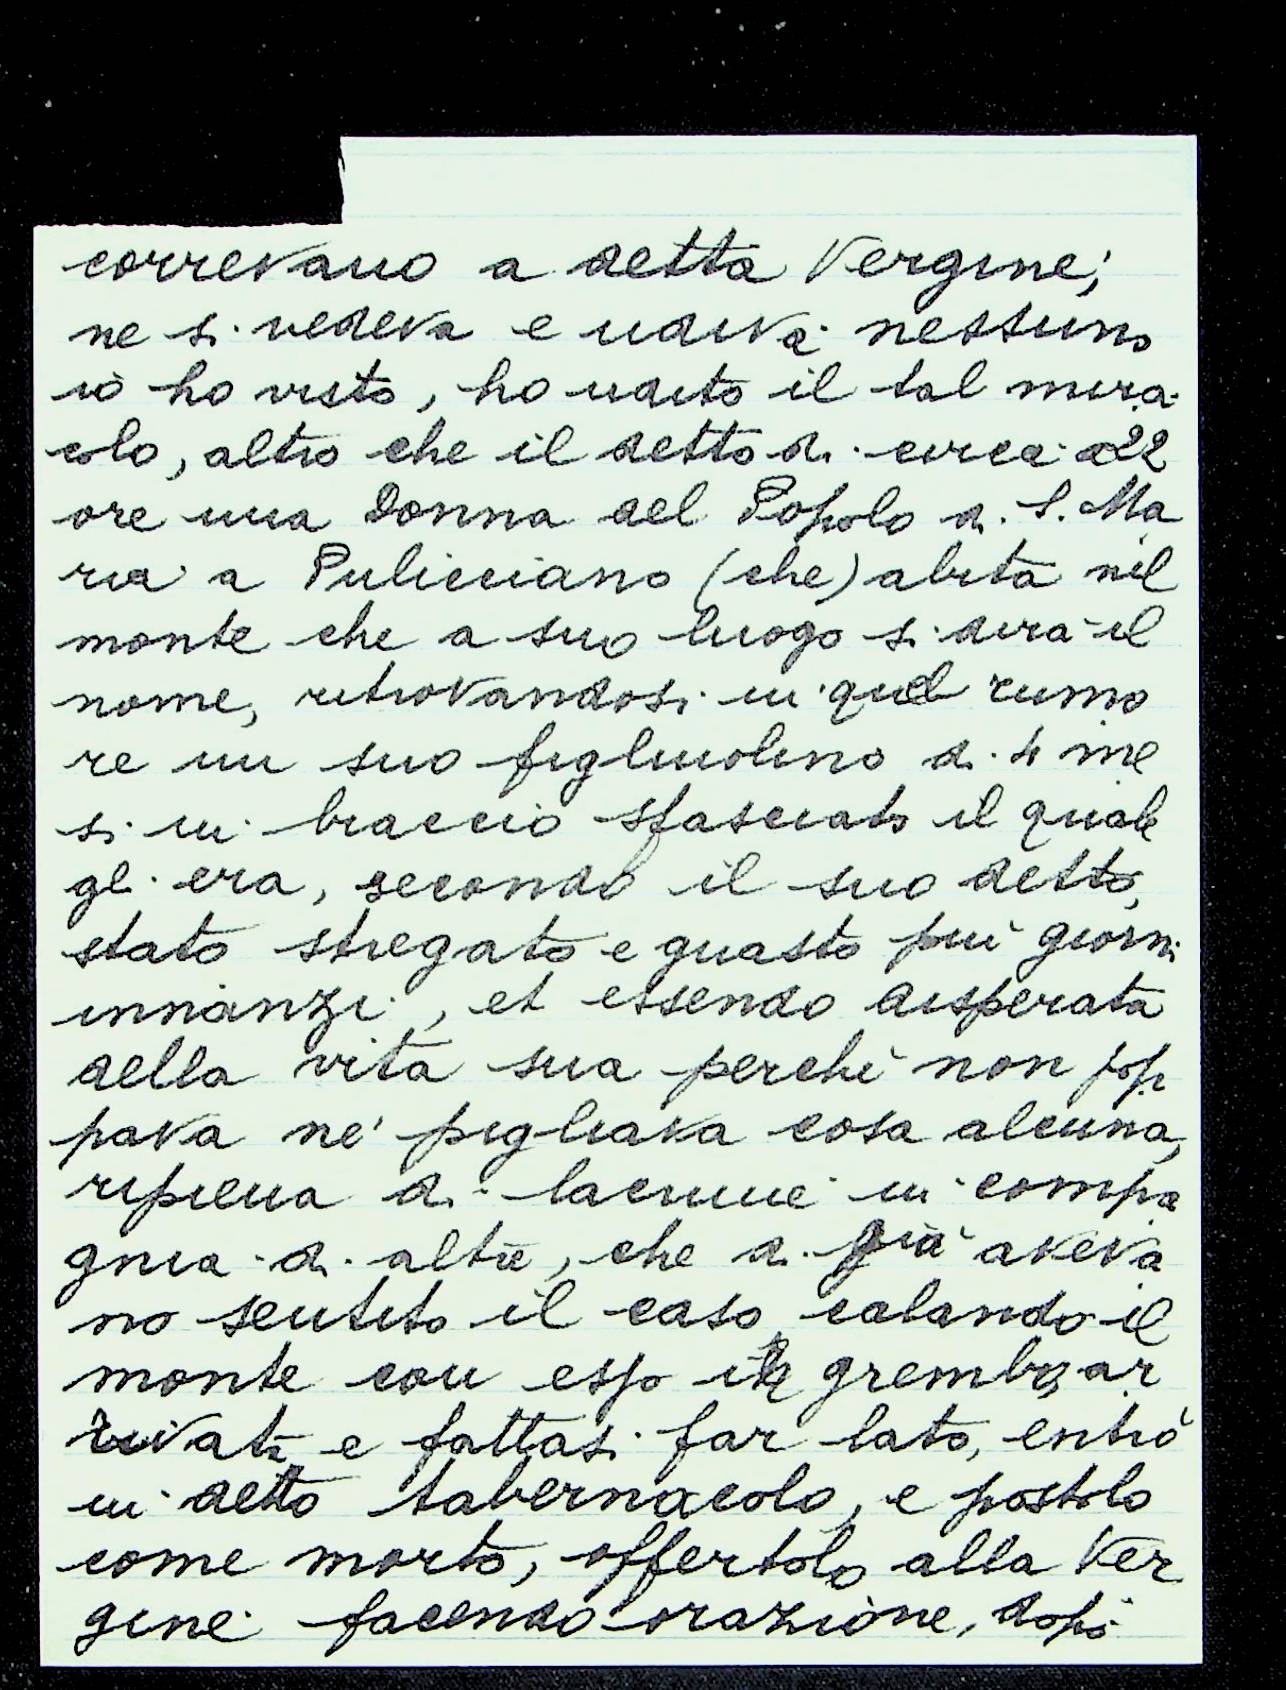 correvano a detta Vergine;
ne si vedeva e udiva nessuno
iò ho visto, ho udito il tal mira-
colo, altro che il detto dì circa a 22
ore una Donna del Popolo di S. Ma
ria a Pulicciano (che) abita nel
monte che a suo luogo si dirà il
nome, ritrovandosi in quel rumo
re un suo figliuolino di 4 me
si in braccio sfasciato il quale
gli era, secondo il suo detto,
stato stregato e guasto più giorni
innanzi, et essendo disperata
della vita sua perché non pop
pava né pigliava cosa alcuna,
ripiena di lacrime in compa
gnia di altre, che di già aveva
no sentito il caso, calando il
monte con esso in grembo, ar
rivati e fattasi far lato, entrò
in detto tabernacolo, e postolo
come morto, offertolo alla Ver
gine facendo orazione, dopo